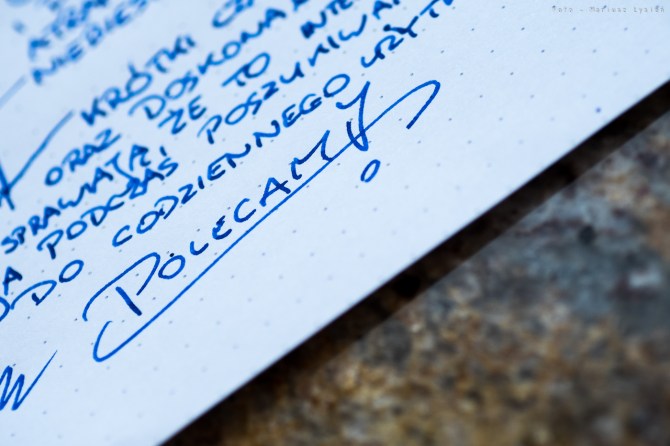 Foto - Mariusz Łysień
KRÓTKI
ORAZ DOSKONA
SPRAWIAJĄ, ŻE TO INTE
A PODCZAS POSZUKIWA
DO CODZIENNEGO UŻYT
POLECAMY!